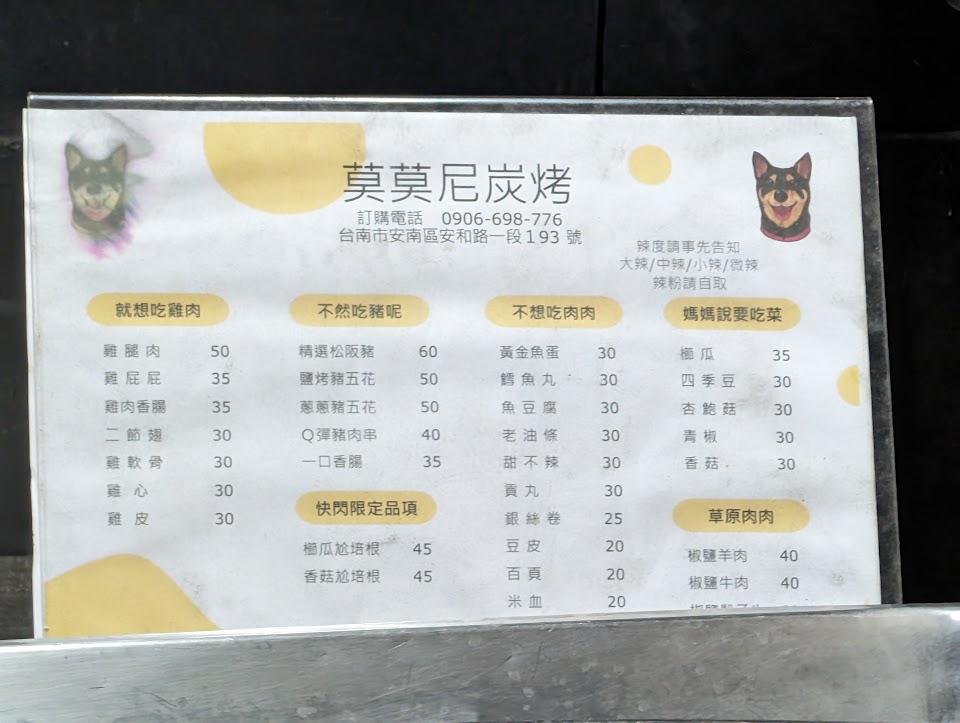 莫莫尼炭烤
訂購電話 0906-698-776
台南市安南區安和路一段193 號
辣度請事先告知
大辣/中辣/小辣/微辣
辣粉請自取
就想吃雞肉
雞腿肉 50
雞屁屁 35
雞肉香腸 35
二節翅 30
雞軟骨 30
雞心 30
雞皮 30
不然吃豬呢
精選松阪豬 60
鹽烤豬五花 50
蔥蔥豬五花 50
Q彈豬肉串 40
一口香腸 35
快閃限定品項
櫛瓜尬培根 45
香菇尬培根 45
不想吃肉肉
黃金魚蛋 30
鱈魚丸 30
魚豆腐 30
老油條 30
甜不辣 30
貢丸 30
銀絲卷 25
豆皮 20
百頁 20
米血 20
媽媽說要吃菜
櫛瓜 35
四季豆 30
杏鮑菇 30
青椒 30
香菇 30
草原肉肉
椒鹽羊肉 40
椒鹽牛肉 40